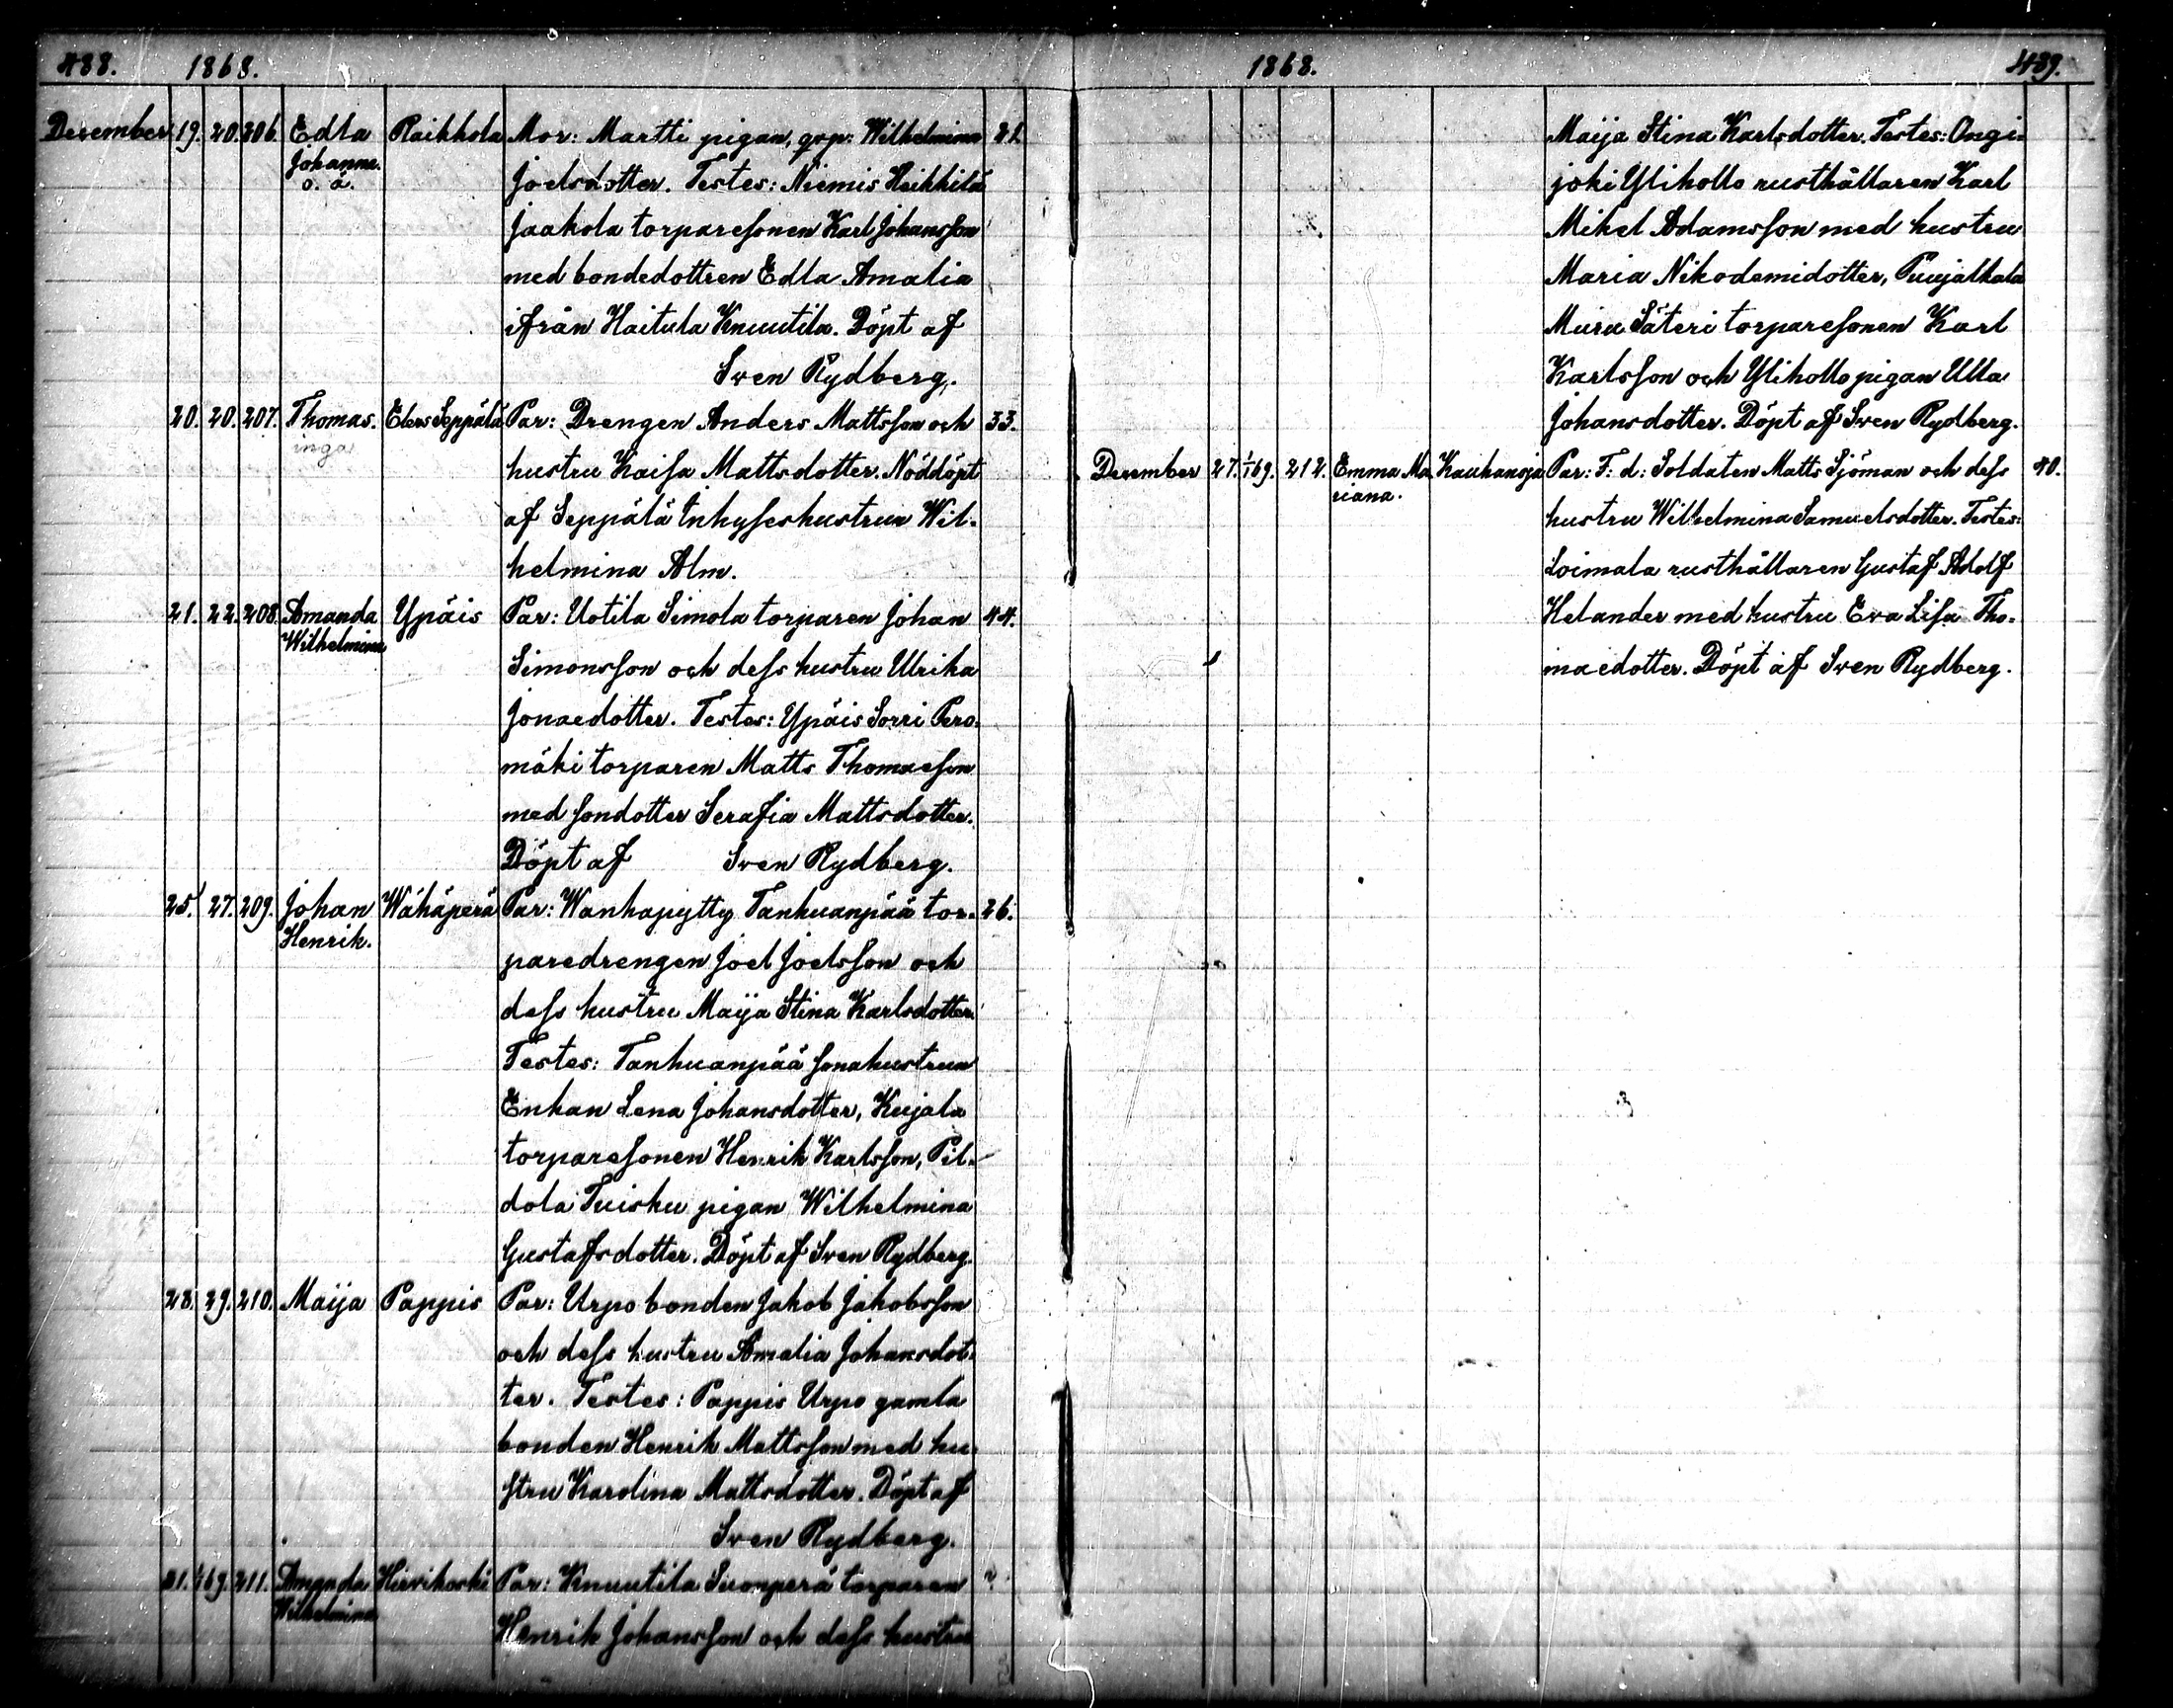 488. 1868.
December 19. 20. 206. Edla Raikkola Mor: Martti pigan, qvp: Wilhelmina 21.
Johanna. Joelsdotter. Testes: Niemis Heikkilä
o. ä.
Jaakola torparesonen Karl Johansson
med bondedottren Edla Amalia
ifrån Haitula Knuutila. Döpt af
Sven Rydberg.
20. 20. 207. Thomas. Elers Seppälä Par: Drengen Anders Mattsson och 33.
inga hustru Kaisa Mattsdotter. Nöddöpt
af Seppälä Inhyseshustrun Wil-
helmina Alm.
21. 22. 208. Amanda Ypäis Par: Uotila Simola torparen Johan 44.
Wilhelmina Simonsson och dess hustru Ulrika
Jonaedotter. Testes: Ypäis Sorri Pero-
mäki torparen Matts Thomaesson
med sondotter Serafia Mattsdotter.
Döpt af Sven Rydberg.
25. 27. 209. Johan Wähäperä Par: Wanhapytty Tanhuanpää tor- 26.
Henrik. paredrengen Joel Joelsson och
dess hustru Maija Stina Karlsdotter.
Testes: Tanhuanpää sonahustrun
Enkan Lena Johansdotter, Kujala
torparesonen Henrik Karlsson, Pil-
dola Tuisku pigan Wilhelmina
Gustafsdotter. Döpt af Sven Rydberg.
28. 29. 210. Maija Pappis Par: Urpo bonden Jakob Jakobsson
och dess hustru Amalia Johansdot-
ter. Testes: Pappis Urpo gamla
bonden Henrik Mattsson med hu-
stru Karolina Mattsdotter. Döpt af
Sven Rydberg.
21. 1/1 69. 211. Amanda Hirvikoski Par: Knuutila Suonperä torparen ?
Wilhelmina Henrik Johansson och dess hustru
1868. 489.
Maija Stina Karlsdotter. Testes: Ongi-
joki Ylihollo rusthållaren Karl
Mikel Adamsson med hustru
Maria Nikodemidotter, Puujalkala
Muru Säteri torparesonen Karl
Karlsson och Ylihollo pigan Ulla
Johansdotter. Döpt af Sven Rydberg.
December 27. 1/1 69. 212. Emma Ma Kauhanoja Par: F: d: Soldaten Matts Sjöman och dess 40.
riana. hustru Wilhelmina Samuelsdotter. Testes:
Loimala rusthållaren Gustaf Adolf
Helander med hustru Eva Lisa Tho-
maedotter. Döpt af Sven Rydberg.